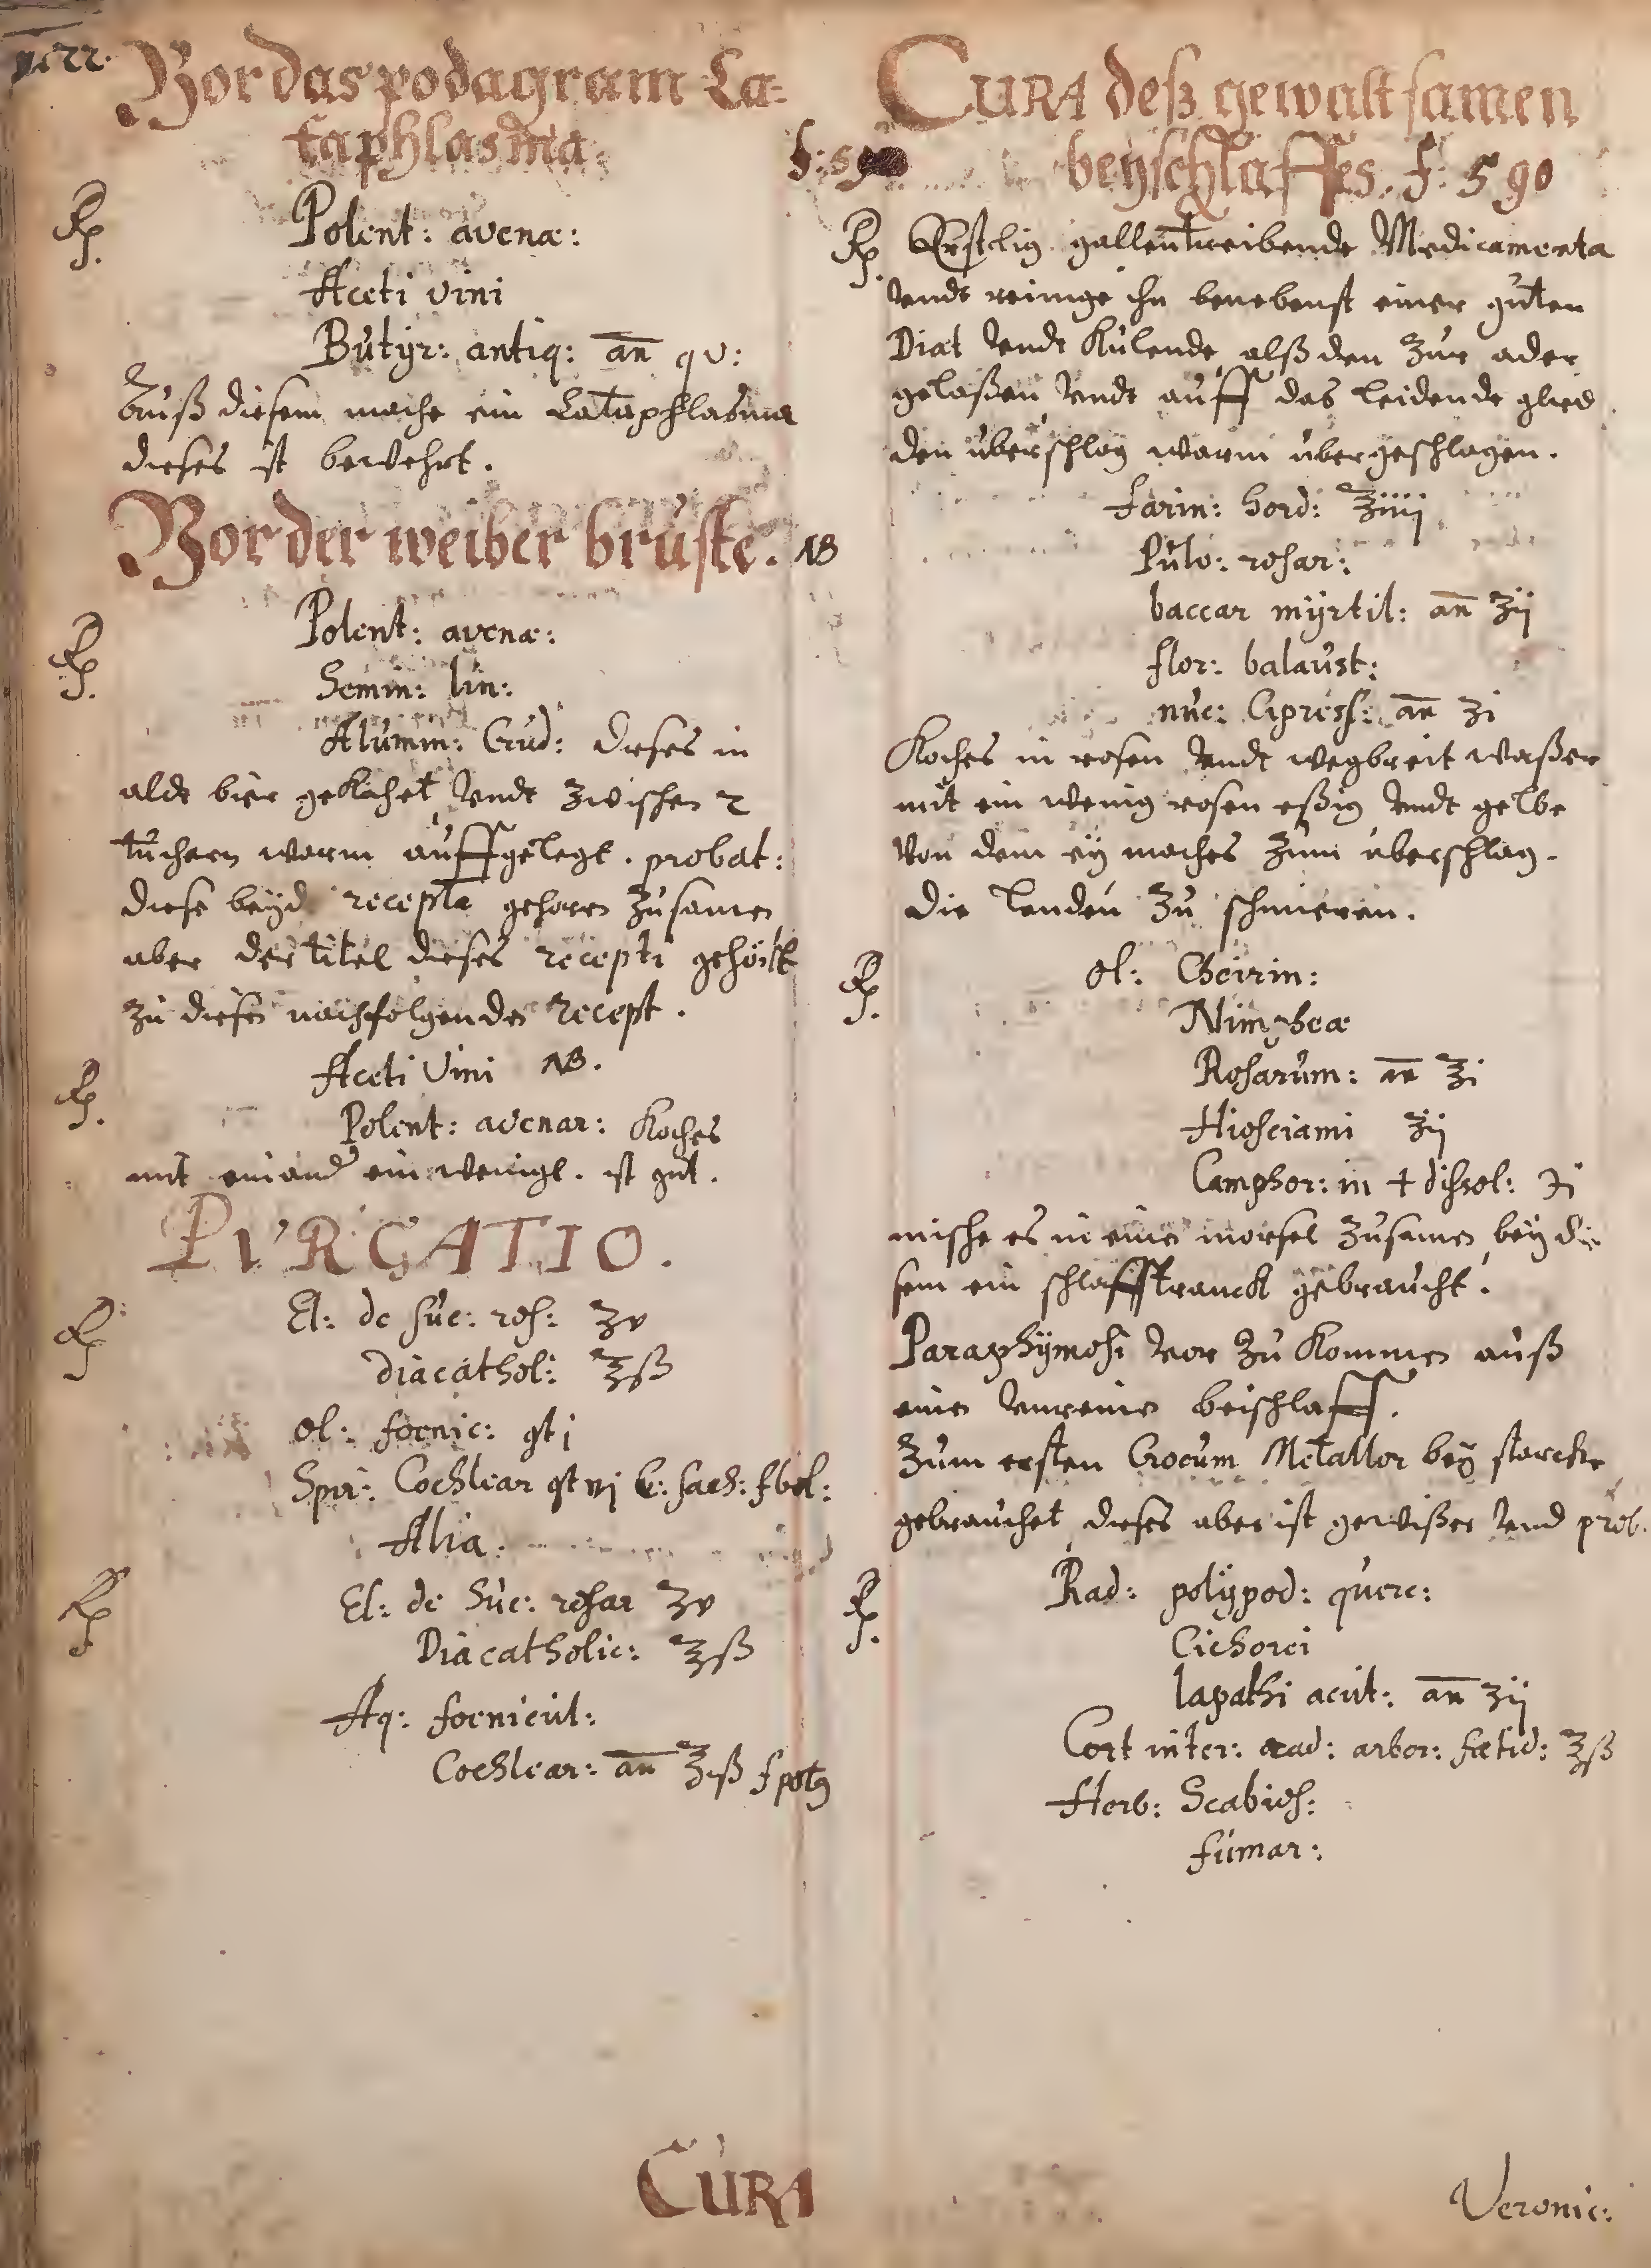 Vor das podagram Ca=
taphlasma.
Rp.
Polent: avenæ:
Aceti vini
Butÿr: antiq: an̅ qv:
Auß diesem mache ein Cataphlasma
dieses ist bewehrt.
Vor der weiber brüste. NB
Rp.
Polent: avenæ:
Semin: lin:
Alumin: Crud: dieses in
aldt bier gekochet undt zwischen 2
tüchern warm auffgelegt. probat:
diese beÿd recepta gehören zusamen
aber der titel dieses recepti gehört
zu diesen nachfolgenden recept.
Rp.
Aceti Vini NB.
Polent: avenar: Koches
mit einand ein wenigl. ist gut.
PVRGATIO.
Rp
El: de suc: ros: ʒv
diacathol: ℥ß
ol: foenic: gt j
Spir: Cochlear gt vj c: sach: f bol:
Alia.
Rp
El: de Suc: rosar ʒv
Diacatholic: ℥ß
Aq: foenicul:
Cochlear: an̅ ℥iß f potg
CURA
CURA deß gewaltsamen
beÿschlaffes. f: 590
Rp. Erstlig gallentreibende Medicamenta
undt reinige ihn benebenst einer guten
Diat undt Kulende alß den zur ader
gelaßen undt auff das leidende glied
den uberschlag warm ubergeschlagen.
Farin: hord: ℥iiij
Pulv: rosar:
baccar mÿrtil: an̅ ℥ij
flor: balaust:
nuc: Cipress: an̅ ʒi
Koches in rosen undt wegbreit waßer
mit ein wenig rosen eßig undt gelbe
von dem eÿ maches zum uberschlag.
Die lenden zu schmieren.
Rp.
ol: Cheirin:
Nimpheæ
Rosarum: an̅ ℥i
Hiosciami ℥ij
Camphor: in + dissol: ℈i
mische es in einen morsel zusamen beÿ die
sem ein schlafftranck gebraucht.
Paraphÿmosi vor zu kommen auß
einen unreinen beischlaff.
Zum ersten Crocum Metallor beÿ starcken
gebrauchet, dieses aber ist gewißer und prob.
Rp.
Rad: polÿpod: querc:
Cichorei
lapathi acut: an̅ ʒij
Cort inter: rad: arbor: fœtid: ℥ß
Herb: Scabios:
fumar:
Veronic: